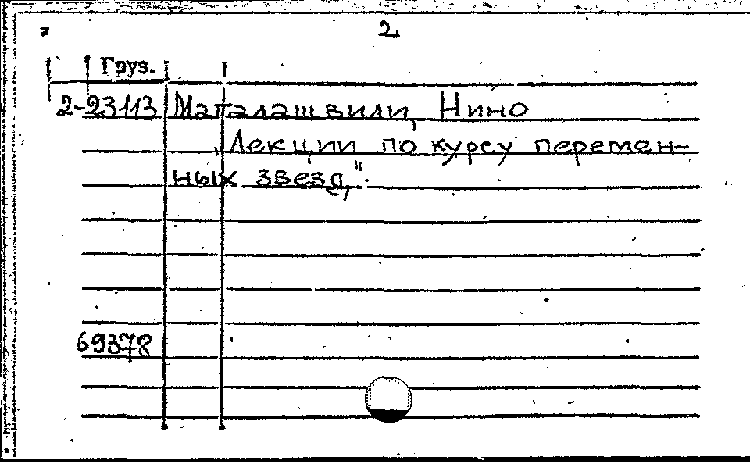 2
Груз.
2-23113 Магалашвили, Нино
„Лекции по курсу перемен-
ных звезд“.
69378